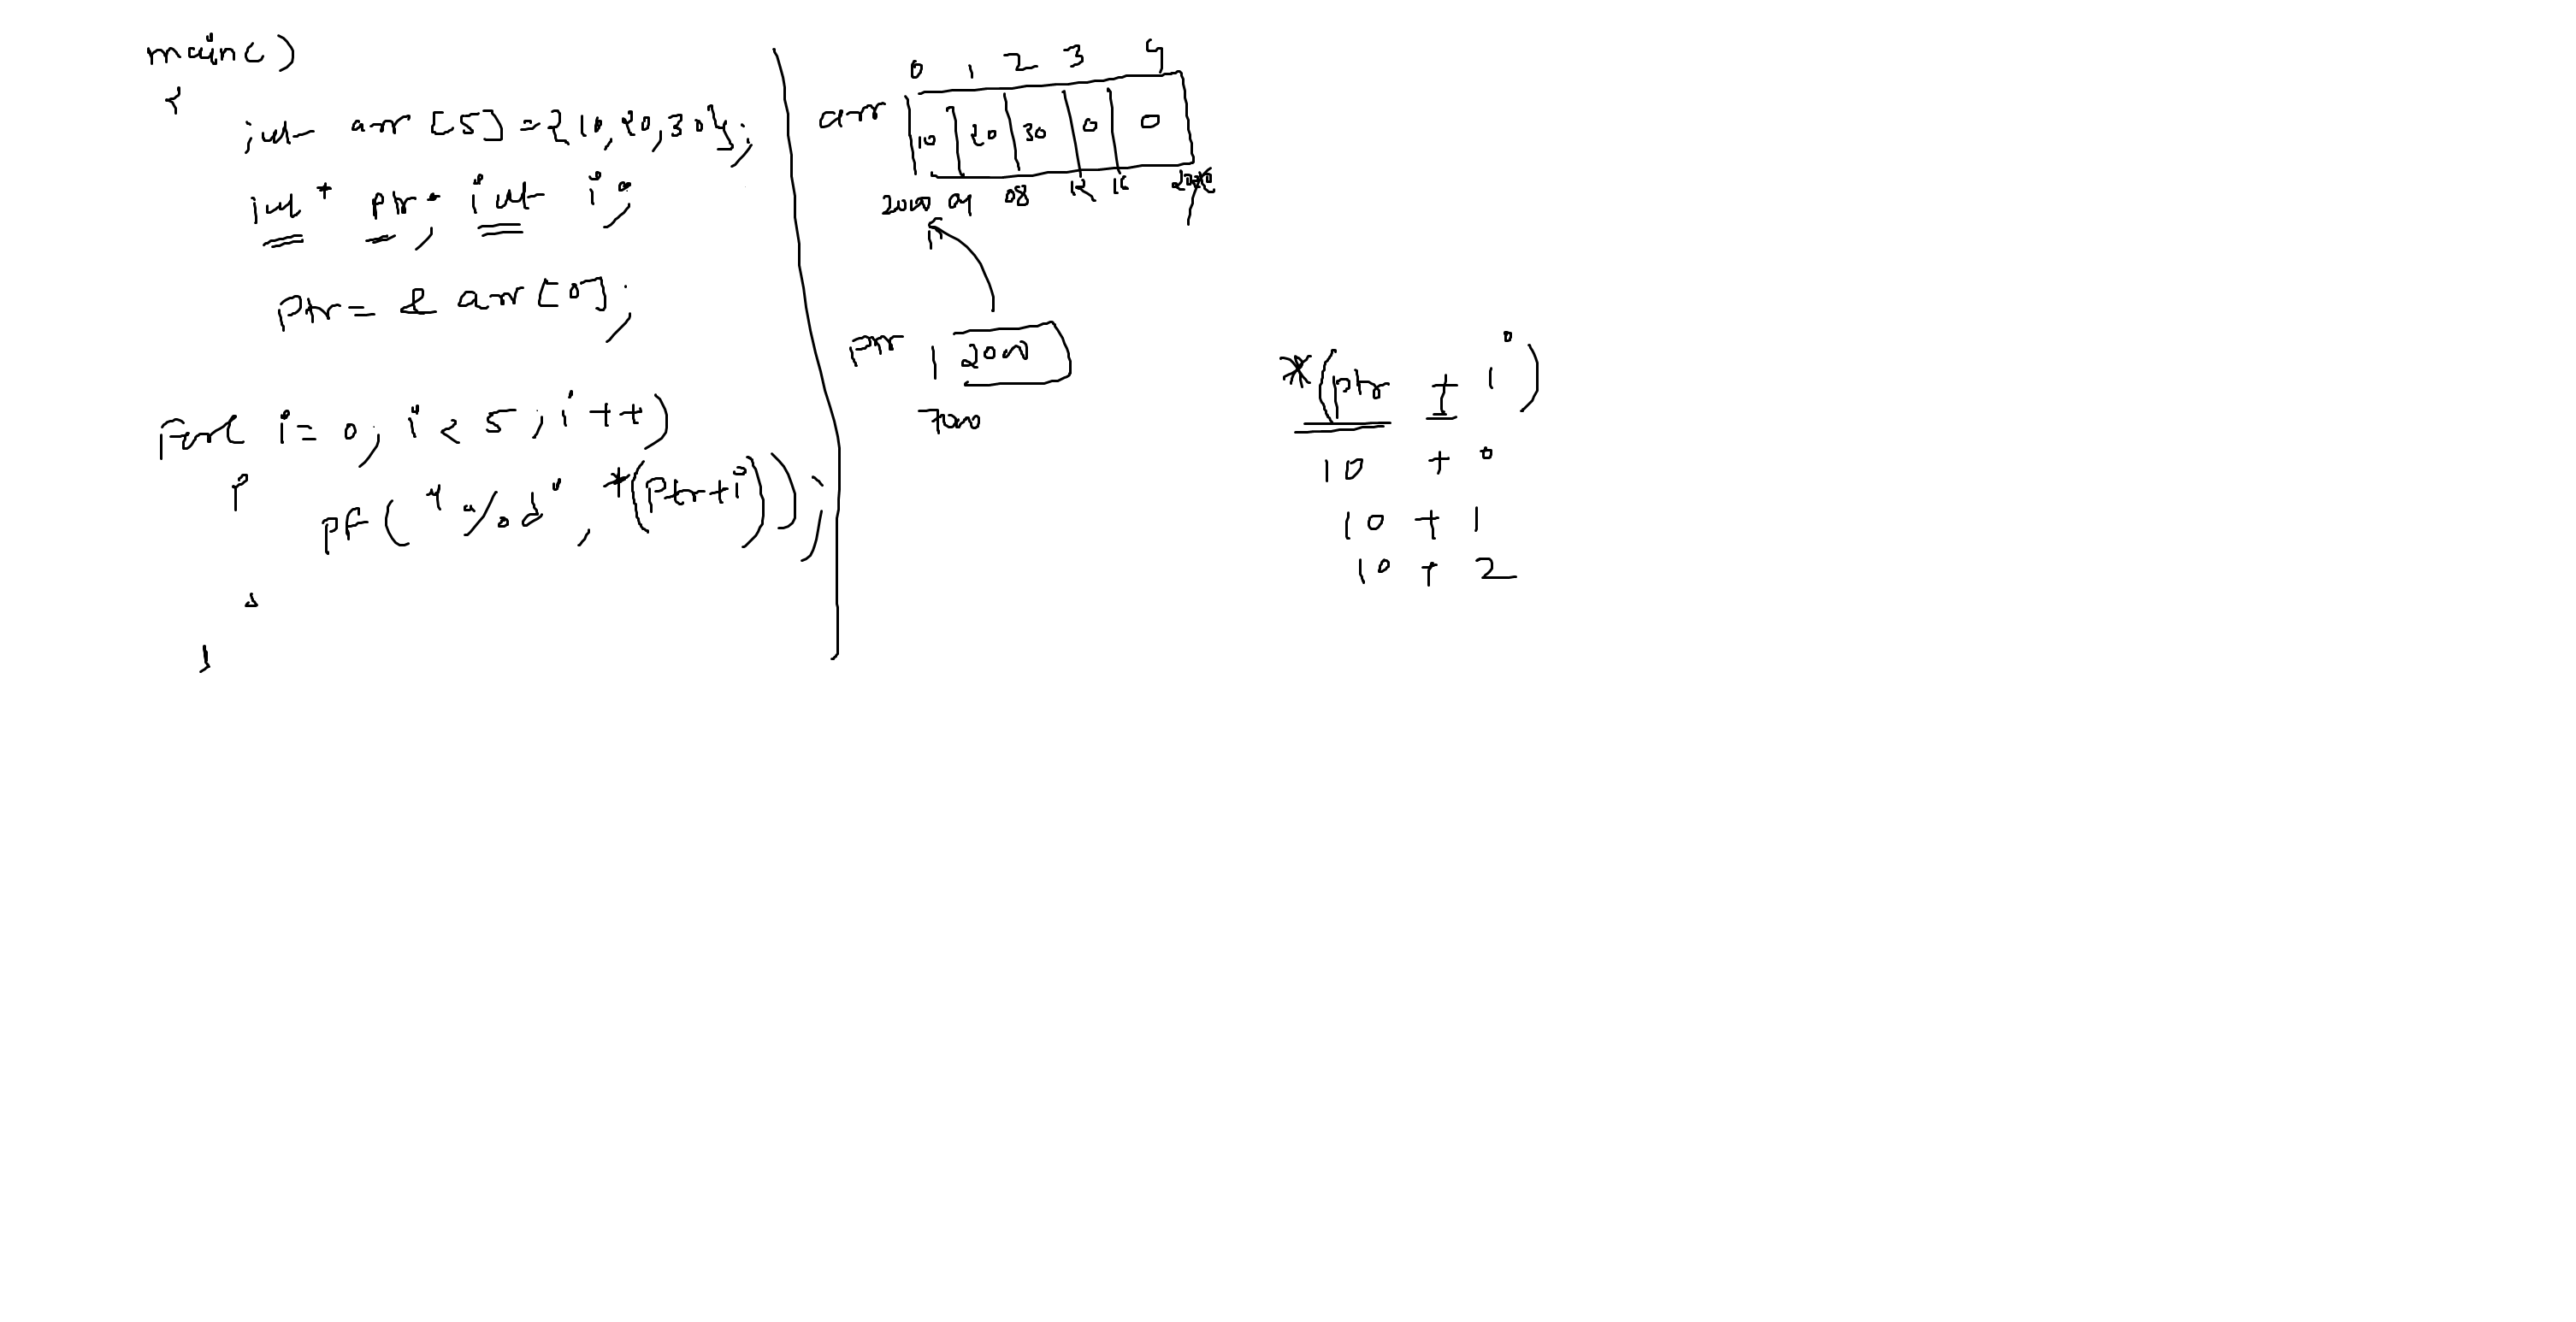 main()
{
int arr[5]={10,20,30};
int * ptr; int i;
ptr= & arr[0];
for( i= 0; i < 5; i++)
{
pf("%d", *(ptr+i));
}
}
0 1 2 3 4
arr 10 20 30 0 0
2000 04 08 12 16
ptr 2000
7000
*(ptr + i)
10 + 0
10 + 1
10 + 2